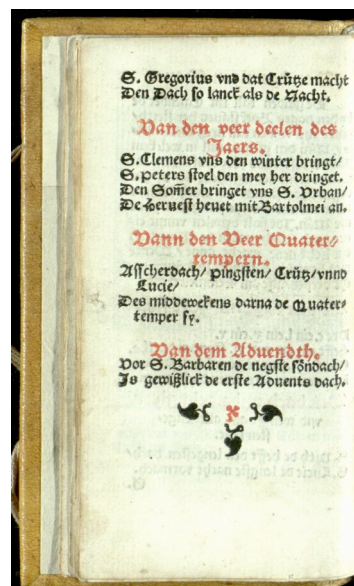 S. Gregorius vnd dat Crütze macht
Den Dach so lanck als de Nacht.
Van den veer deelen des
Jaers.
S. Clemens vns den winter bringt/
S. peters stoel den mey her dringet.
Den Som̃er bringet vns S. Vrban/
De Heruest heuet mit Bartolmei an.
Vann den Veer Quater⸗
tempern.
Asscherdach/ pingsten/ Crütz/ vnnd
Lucie/
Des middewekens darna de Quater⸗
temper sy.
Van dem Aduendth.
Vor S. Barbaren de negste söndach/
Is gewißlick de erste Aduents dach.